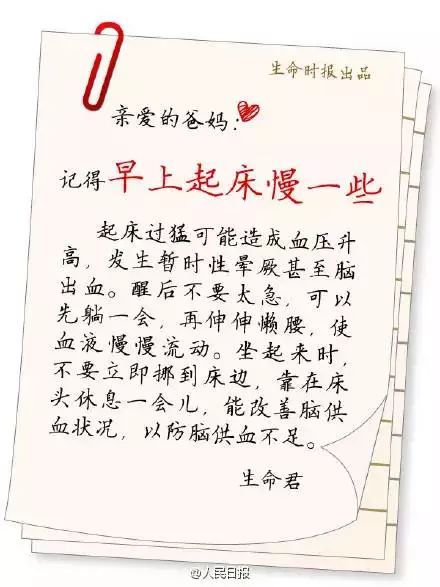 生命时报出品
亲爱的爸妈：
记得早上起床慢一些
起床过猛可能造成血压升
高，发生暂时性晕厥甚至脑
出血。醒后不要太急，可以
先躺一会，再伸伸懒腰，使
血液慢慢流动。坐起来时，
不要立即挪到床边，靠在床
头休息一会儿，能改善脑供
血状况，以防脑供血不足。
生命君
@人民日报